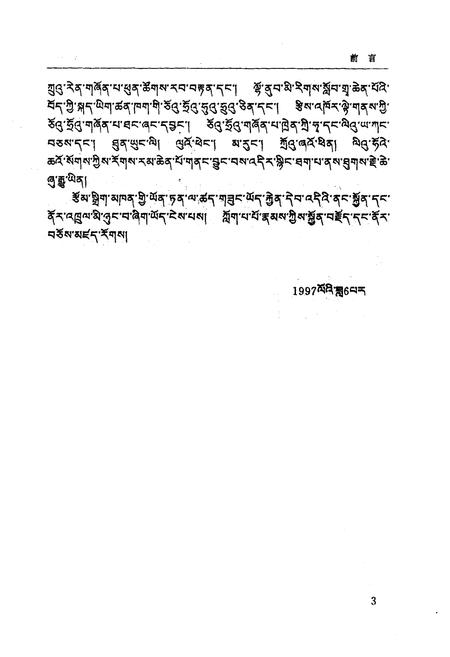 前 言
ཀྲུའུ་རེན་གཞོན་པ་ཕུན་ཚོགས་རབ་བརྟན་དང་། ལྷོ་ནུབ་མི་རིགས་སློབ་གྲྭ་ཆེན་པོའི་
བོད་ཀྱི་སྐད་ཡིག་ཚན་ཁག་གི་ཅོའུ་ཧྲོའུ་ཧྲུའུ་ཅིན་དང་། རྩིས་འཁོར་ལྟེ་གནས་ཀྱི་
ཅོའུ་ཧྲོའུ་གཞོན་པ་ཐང་ཞང་དབྱང་། ཅོའུ་ཧྲོའུ་གཞོན་པ་ཁྲེན་ཀྲི་ཧྭ་དང་ལིའུ་ཡ་ཀང་
བཅས་དང་། ཐུན་ཡུང་ལི། ལུའོ་ཕེང་། མ་རུང་། ཀྲོའུ་ཞའོ་ཕིན། ལིའུ་ཧོའེ་
ཆའོ་སོགས་ཀྱིས་རོགས་རམ་ཆེན་པོ་གནང་བྱུང་བས་འདིར་སྙིང་ཐག་པ་ནས་ཐུགས་རྗེ་ཆེ་
ཞུ་རྒྱུ་ཡིན།
རྩོམ་སྒྲིག་མཁན་གྱི་ཡོན་ཏན་ལ་ཚད་གཟུང་ཡོད་རྐྱེན་དེབ་འདིའི་ནང་སྐྱོན་དང་
ནོར་འཁྲུལ་མི་ཉུང་བ་ཞིག་ཡོད་ངེས་པས། ཀློག་པ་པོ་རྣམས་ཀྱིས་སྐྱོན་བརྗོད་དང་ནོར་
བཅོས་མཛད་རོགས།
1997ལོའི་ཟླ6པར
3